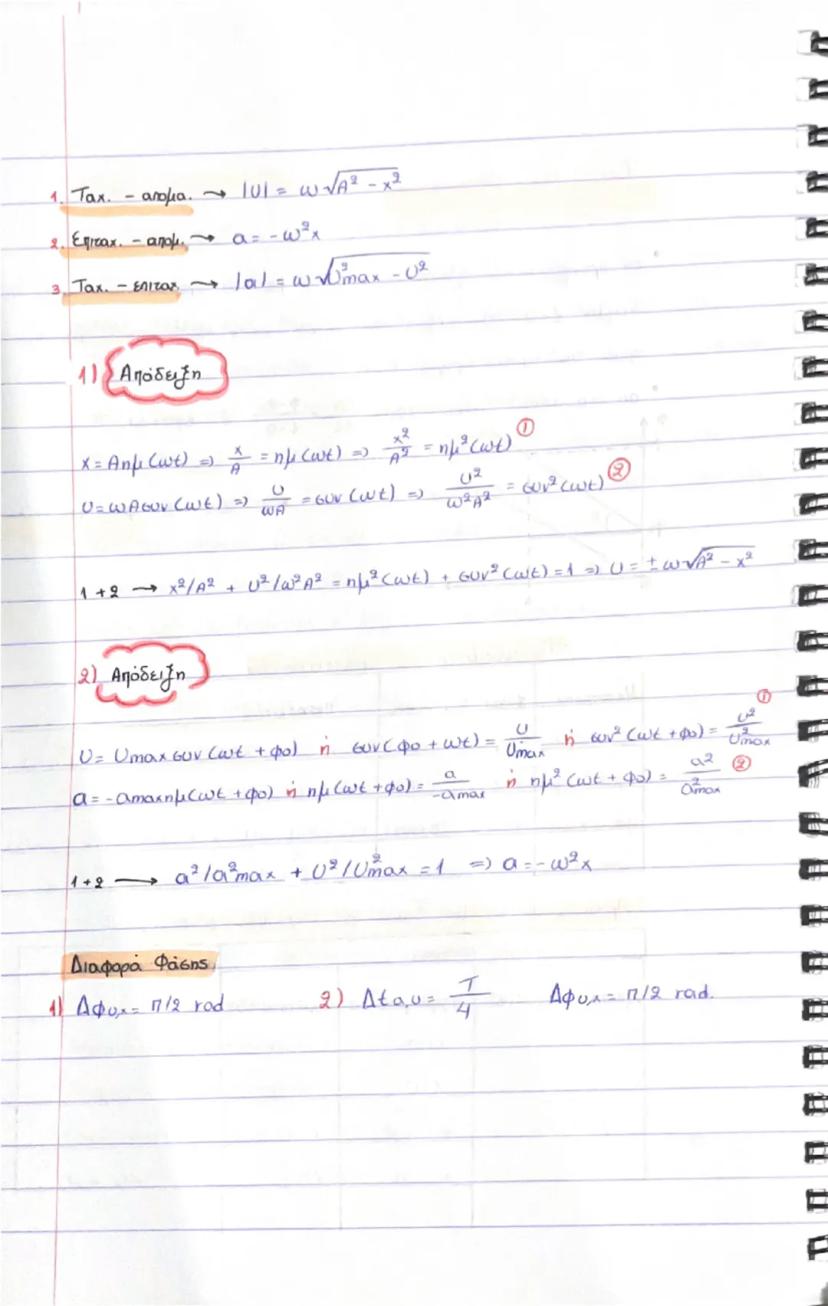 1. Ταχ. - απομα. → |υ| = ω√A² - x²
2. Επιταχ. - απομ. → a = -ω²x
3. Ταχ. - επιταχ → |a| = ω√υ²max - υ²
1) Απόδειξη
x = Aημ (ωt) => x/A = ημ (ωt) => x²/A² = ημ² (ωt) ①
υ = ωAσυν (ωt) => υ/ωA = συν (ωt) => υ²/ω²A² = συν² (ωt) ②
1 + 2 → x²/A² + υ²/ω²A² = ημ² (ωt) + συν² (ωt) = 1 => υ = ± ω√A² - x²
2) Απόδειξη
υ = υmax συν (ωt + φ0) ή συν (φ0 + ωt) = υ/υmax ή συν² (ωt + φ0) = υ²/υ²max ①
a = -amaxημ (ωt + φ0) ή ημ (ωt + φ0) = a/-amax ή ημ² (ωt + φ0) = a²/a²max ②
1 + 2 → a²/a²max + υ²/υ²max = 1 => a = -ω²x
Διαφορά Φάσης
1) Δφυ,x = π/2 rad 2) Δta,υ = T/4 Δφυ,x = π/2 rad.